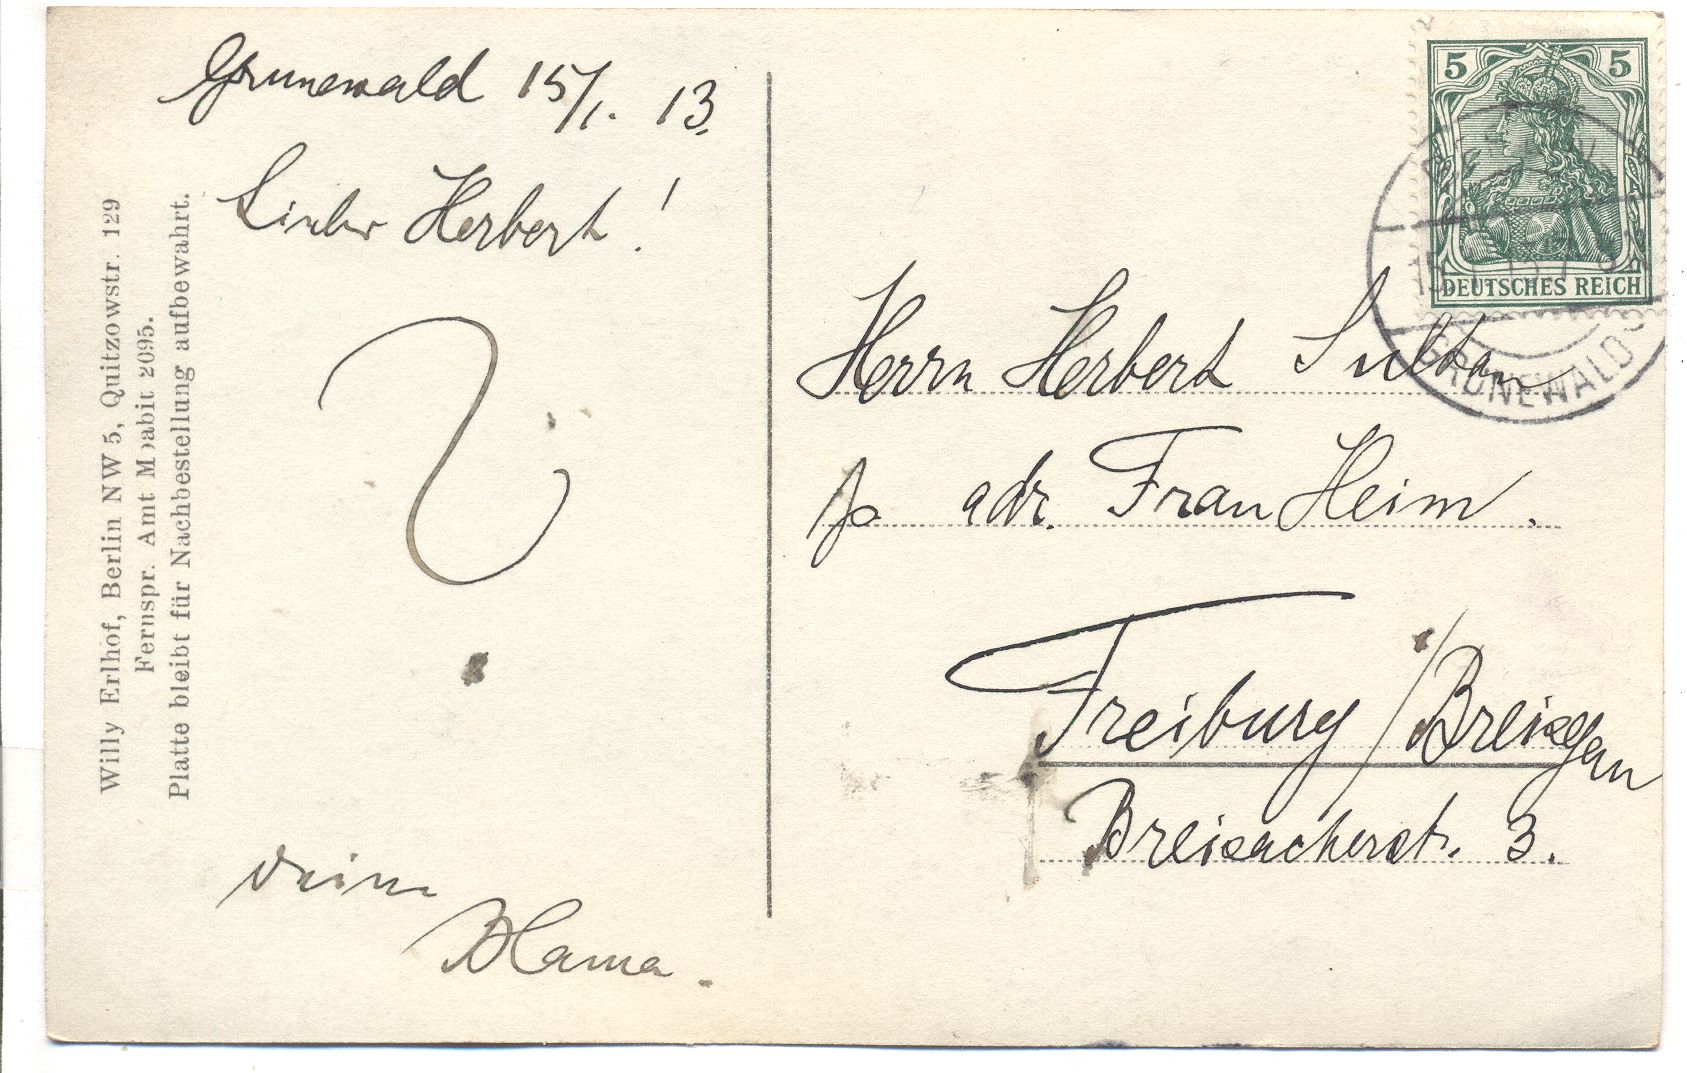 Grunewald 15/1. 13.
Lieber Herbert!
?
Deine
Mama.
Willy Erlhof, Berlin NW 5, Quitzowstr. 129
Fernspr. Amt Moabit 2095.
Platte bleibt für Nachbestellung aufbewahrt.
5 5
DEUTSCHES REICH
GRUNEWALD
Herrn Herbert Sultan
p adr. Frau Heim.
Freiburg i/Breisgau
Breisacherstr. 3.